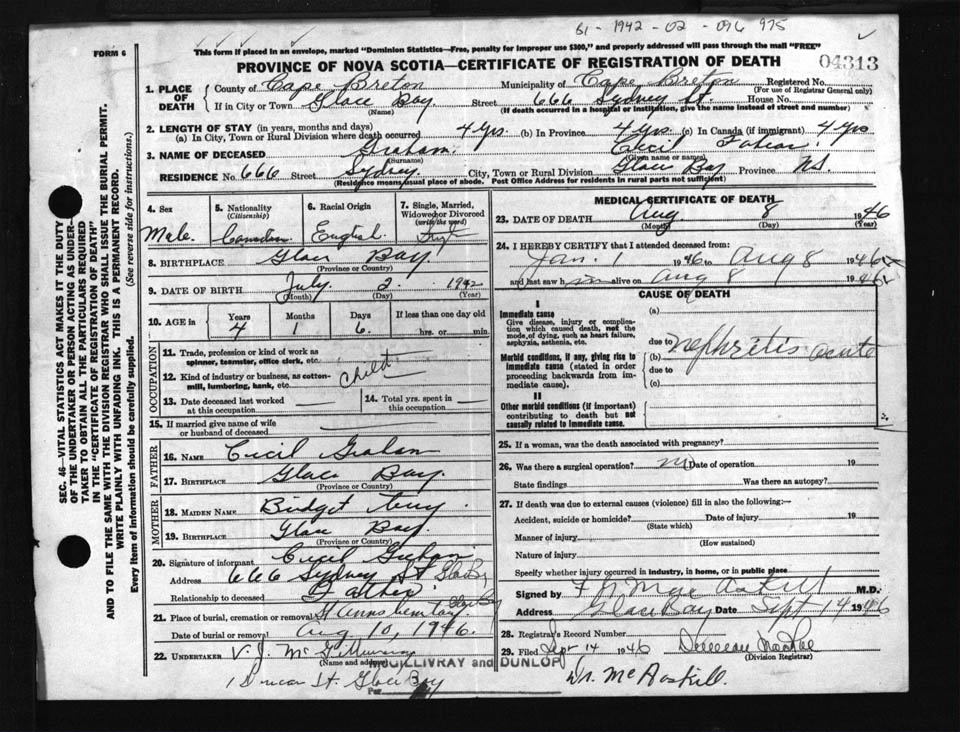 B1 - 1942 - 02 - 096 975
FORM 6
This form if placed in an envelope, marked "Dominion Statistics—Free, penalty for improper use $300," and properly addressed will pass through the mail "FREE"
PROVINCE OF NOVA SCOTIA—CERTIFICATE OF REGISTRATION OF DEATH
04313
1. PLACE OF DEATH
County of Cape Breton Municipality of Cape Breton Registered No.
(For use of Registrar General only)
If in City or Town Glace Bay Street 666 Sydney St. House No.
(Name) (If death occurred in a hospital or institution, give the name instead of street and number)
2. LENGTH OF STAY (in years, months and days)
(a) In City, Town or Rural Division where death occurred 4 Yrs. (b) In Province 4 Yrs (c) In Canada (if immigrant) 4 Yrs
3. NAME OF DECEASED Graham. Cecil
(Surname) (Given name or names)
RESIDENCE No. 666 Street Sydney. City, Town or Rural Division Glace Bay Province N.S.
(Residence means usual place of abode. Post Office Address for residents in rural parts not sufficient)
4. Sex
Male
5. Nationality
(Citizenship)
Canadian
6. Racial Origin
English
7. Single, Married, Widowed or Divorced
(write the word)
8. BIRTHPLACE Glace Bay
(Province or Country)
9. DATE OF BIRTH July 2. 1942
(Month) (Day) (Year)
10. AGE in Years Months Days If less than one day old
4 1 6 hrs. or min.
OCCUPATION
11. Trade, profession or kind of work as spinner, teamster, office clerk, etc.
12. Kind of industry or business, as cotton-mill, lumbering, bank, etc. Child
13. Date deceased last worked at this occupation
14. Total yrs. spent in this occupation
15. If married give name of wife or husband of deceased
FATHER
16. NAME Cecil Graham
17. BIRTHPLACE Glace Bay.
(Province or Country)
MOTHER
18. MAIDEN NAME Bridget
19. BIRTHPLACE Glace Bay
(Province or Country)
20. Signature of informant Cecil Graham
Address 666 Sydney St Glace Bay
Relationship to deceased Father
21. Place of burial, cremation or removal St Anns Cemetary Glace Bay
Date of burial or removal Aug 10, 1946.
22. UNDERTAKER V. J. McGillivray
(Name and address)
McGILLIVRAY and DUNLOP
1 Duncan St. Glace Bay
Per
MEDICAL CERTIFICATE OF DEATH
23. DATE OF DEATH Aug 8 1946
(Month) (Day) (Year)
24. I HEREBY CERTIFY that I attended deceased from:
Jan. 1 1946 to Aug 8 1946
and last saw him alive on Aug 8 1946
CAUSE OF DEATH
I
Immediate cause
Give disease, injury or complication which caused death, not the mode of dying, such as heart failure, asphyxia, asthenia, etc.
(a)
due to
Morbid conditions, if any, giving rise to immediate cause (stated in order proceeding backwards from immediate cause).
(b) nephritis acute
due to
(c)
II
Other morbid conditions (if important) contributing to death but not causally related to immediate cause.
25. If a woman, was the death associated with pregnancy?
26. Was there a surgical operation? no Date of operation 19
State findings Was there an autopsy?
27. If death was due to external causes (violence) fill in also the following:—
Accident, suicide or homicide? Date of injury 19
(State which)
Manner of injury
(How sustained)
Nature of injury
Specify whether injury occurred in industry, in home, or in public place
Signed by M.D.
Address Glace Bay Date Sept 14 1946
28. Registrar's Record Number
29. Filed Sept 14 1946 Duncan MacRae
(Division Registrar)
Dr. McAskill.
SEC. 46—VITAL STATISTICS ACT MAKES IT THE DUTY
OF THE UNDERTAKER OR PERSON ACTING AS UNDER-
TAKER TO OBTAIN ALL THE PARTICULARS REQUIRED
IN THE "CERTIFICATE OF REGISTRATION OF DEATH"
AND TO FILE THE SAME WITH THE DIVISION REGISTRAR WHO SHALL ISSUE THE BURIAL PERMIT.
WRITE PLAINLY WITH UNFADING INK. THIS IS A PERMANENT RECORD.
Every item of information should be carefully supplied. (See reverse side for instructions.)